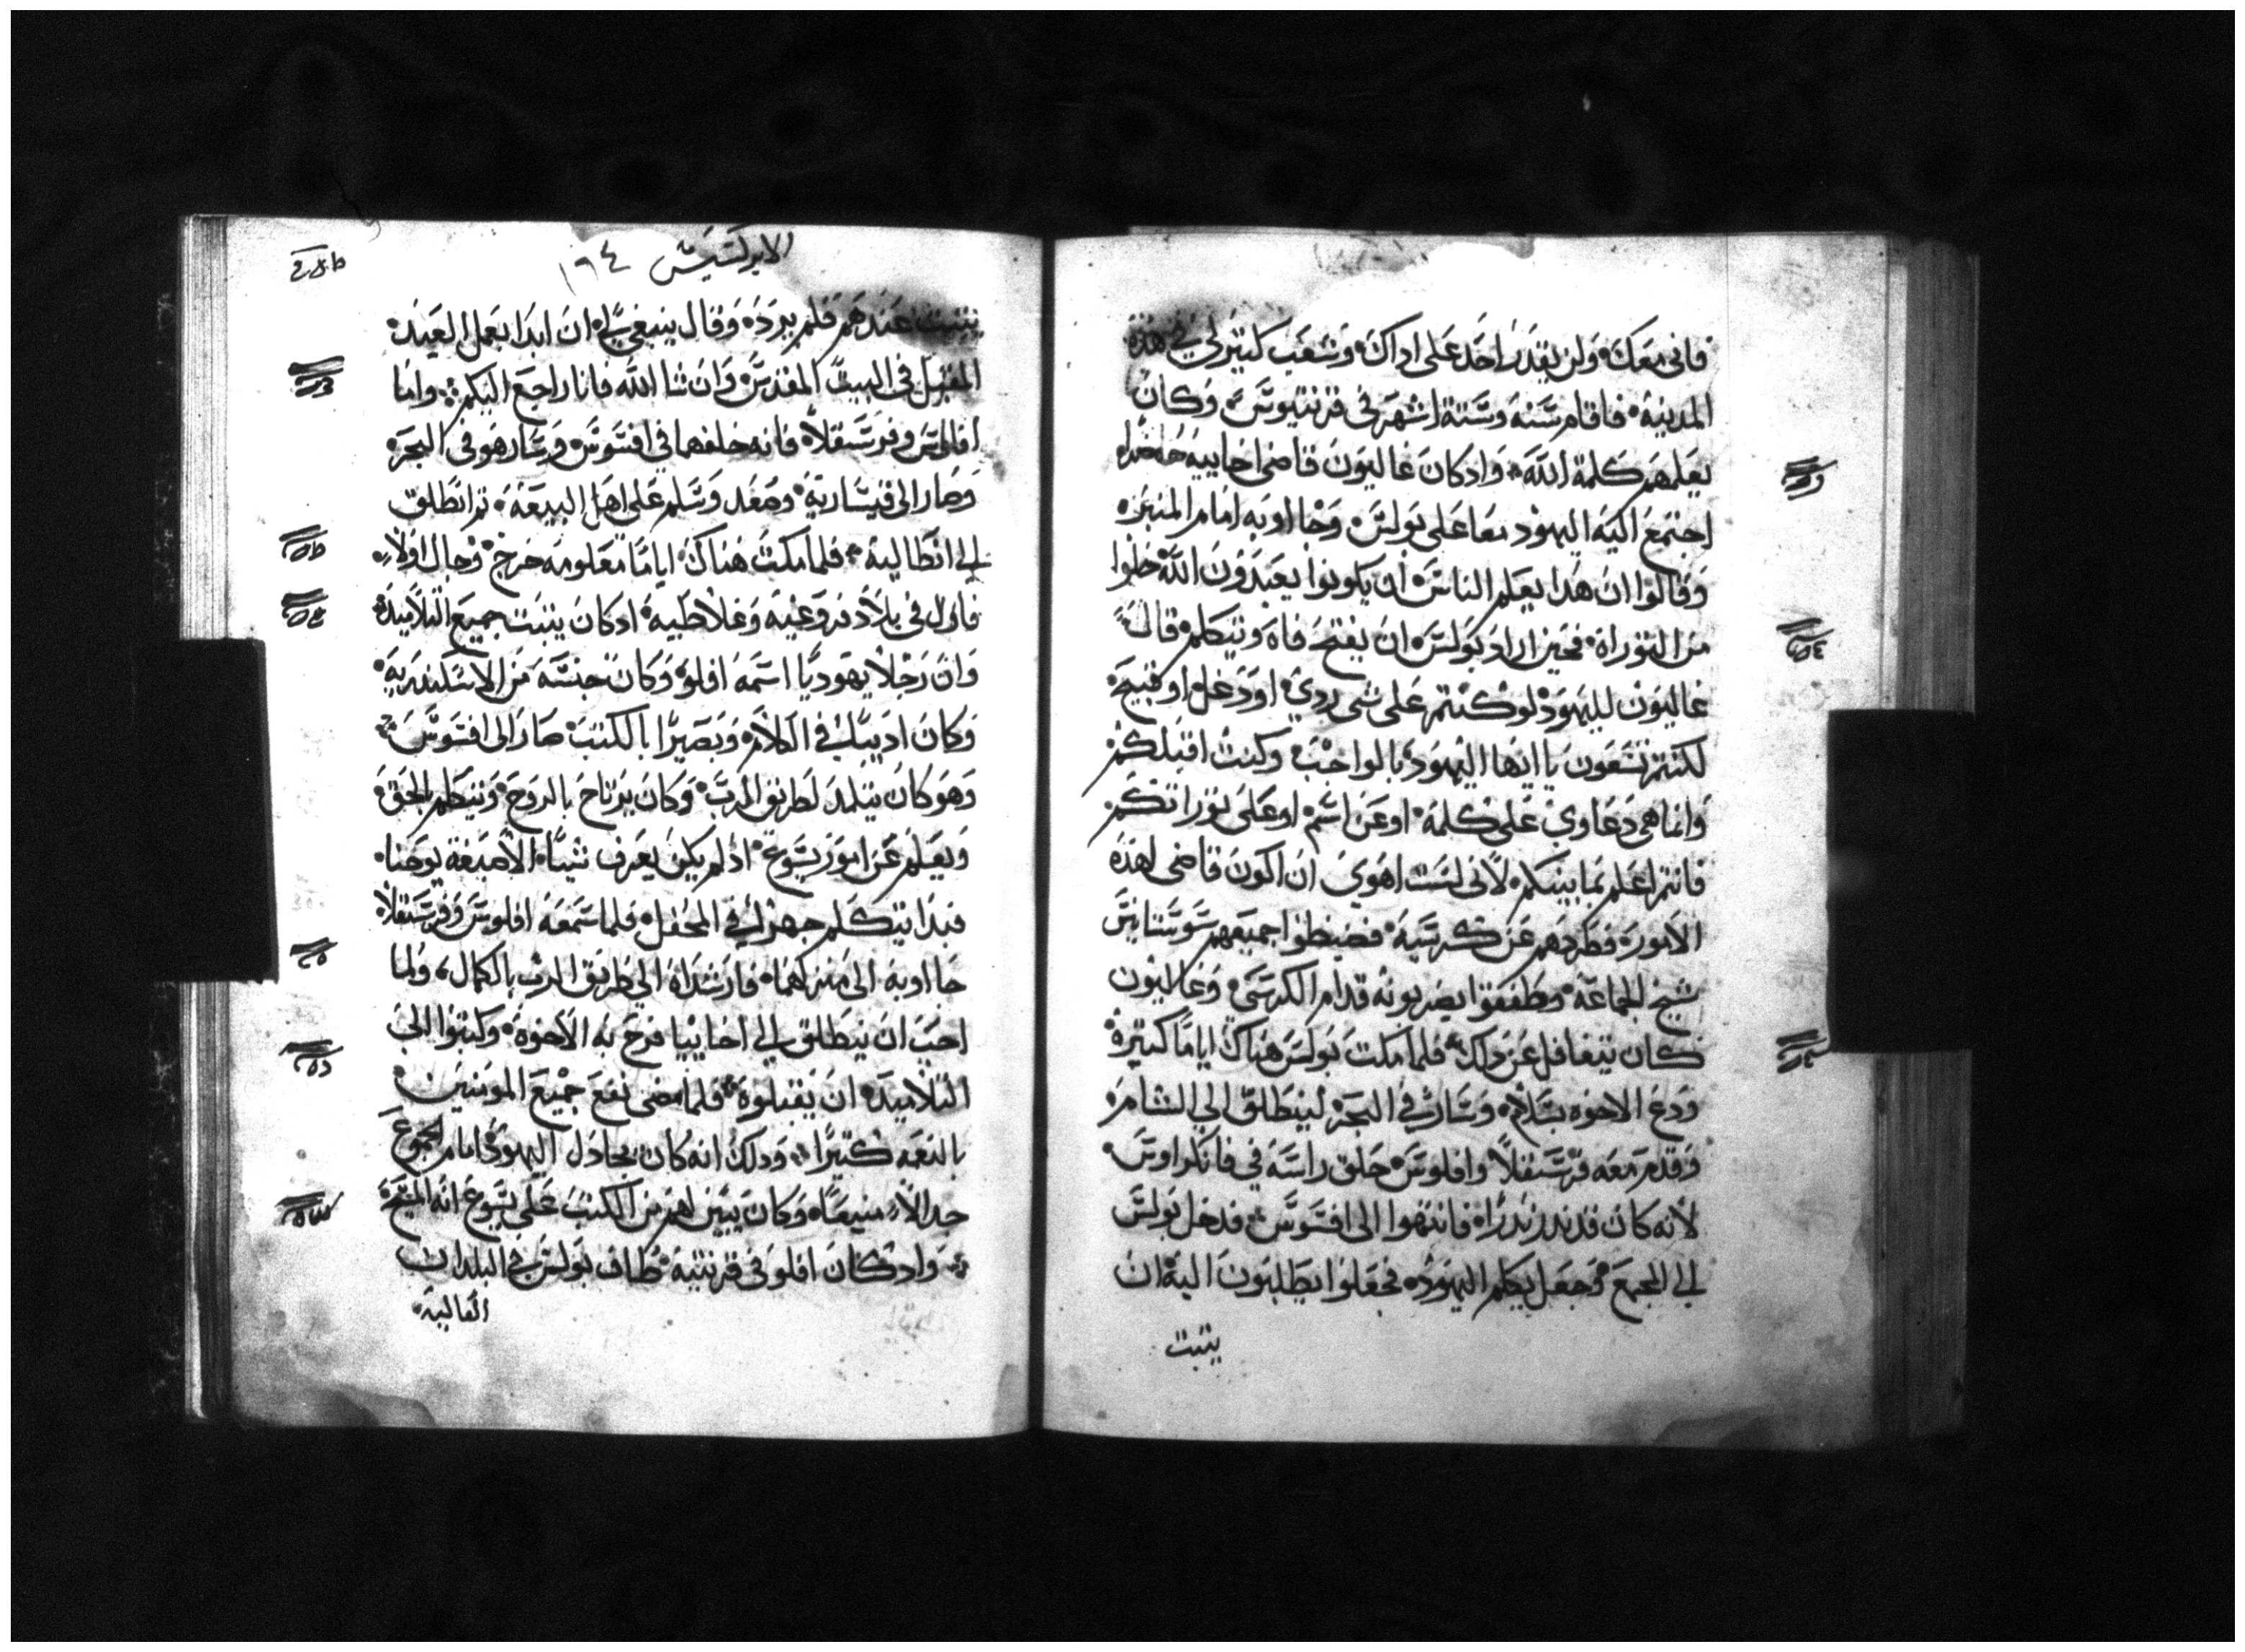 فاني معك ولن يقدر احد على اداك وشعب كتير لي في هذه
المدينة فاقام سنة وستة اشهر في قرنتيوس وكان
يعلمهم كلمة الله وادكان غاليون قاضي اخاييه حاضرا
اجتمع اليه اليهود معا على بولس وجااوبه امام المنبر
وقالوا ان هدا يعلم الناس ان يكونوا يعبدون الله خلوا
من التوراة فحين اراد بولس ان يفتح فاه ويتكلم قال
غاليون لليهود لو كنتم على شي ردي او دغل او قبيح
لكنتم تسعون ياايها اليهود بالواجب وكنت اقبلكم
وانما هي دعاوي على كلمة او عن اسم او على توراتكم
فانتم اعلم بما بينكم لاني لست اهوي ان اكون قاضي لهذه
الامور فطردهم عن كرسيه فضبطوا جميعهم سوستانيس
شيخ الجماعة وطفقوا يضربونه قدام الكرسي وغاليون
كان يتغافل عن دلك فلما مكت بولس هناك اياما كتيرة
ودع الاخوه بسلام وسار في البحر لينطلق الي الشام
وقدم معه فرسقلا واقلوس حلق راسه في فانكراوس
لانه كان قد ندر ندرا فانتهوا الى افسوس فدخل بولس
الي المجمع وجعل يكلم اليهود فجعلوا يطلبون اليه ان
يتبت
الابركسيس ١٩٤
يتبت عندهم فلم يرده وقال ينبغي لي ان ابدا بعمل العيد
المقبل في البيت المقدس وان شا الله فانا راجع اليكم واما
اقلوس وفرسقلا فانه خلفهما في افسوس وسار هو في البحر
وصار الى قيسارية وصعد وسلم على اهل البيعة تم انطلق
الي انطاليه فلما مكت هناك اياما معلومه خرج وجال اولا
فاول في بلاد فروعيه وغلاطيه ادكان يتبت جميع التلاميد
وان رجلا يهوديا اسمه افلو وكان جنسه من الاسكندرية
وكان اديبا في الكلام وبصيرا بالكتب صار الى افسوس
وهو كان يتلمد لطريق الرب وكان يرتاح بالروح ويتكلم بالحق
ويعلم عن امور يسوع ادلم يكن يعرف شيا الاصبغة يوحنا
فبدا يتكلم جهرا في المحفل فلما سمعه اقلوس وفرسقلا
جااوبه الى منزلهما فارشداه الي طريق الرب بالكمال ولما
احب ان ينطلق الي اخاييا فرح به الاخوة وكتبوا الى
التلاميد ان يقبلوه فلما مضى نفع جميع المومنين
بالنعمه كتيرا ودلك انه كان يجادل اليهود امام الجموع
جدالا منيعا وكان يبين لهم من الكتب على يسوع انه المسيح
وادكان افلو في قرنتيه طاف بولس في البلدان
العاليه